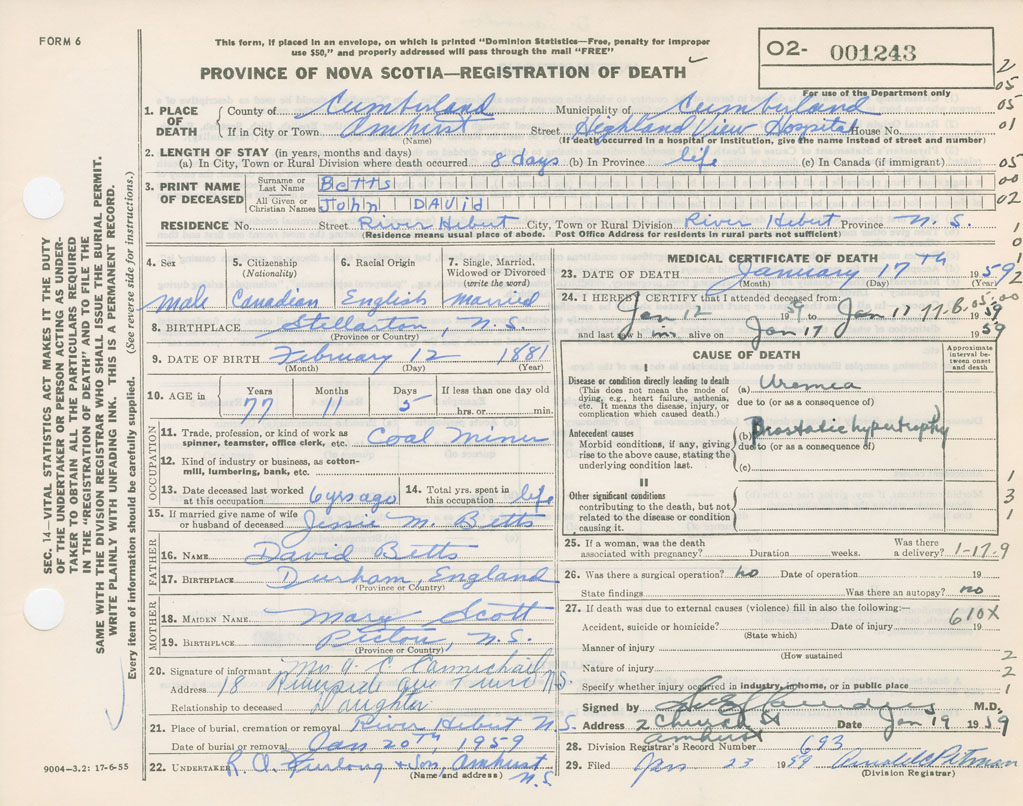 FORM 6
This form, if placed in an envelope, on which is printed "Dominion Statistics—Free, penalty for improper
use $50," and properly addressed will pass through the mail "FREE"
O2- 001243
For use of the Department only
PROVINCE OF NOVA SCOTIA—REGISTRATION OF DEATH
2
05
05
01
05
00
02
1
0
1
2
1. PLACE OF DEATH County of Cumberland Municipality of Cumberland
If in City or Town Amherst Street Highland View Hospital House No.
(Name) (If death occurred in a hospital or institution, give the name instead of street and number)
2. LENGTH OF STAY (in years, months and days)
(a) In City, Town or Rural Division where death occurred 8 days (b) In Province life (c) In Canada (if immigrant)
3. PRINT NAME OF DECEASED Surname or Last Name Betts
All Given or Christian Names John David
RESIDENCE No. Street River Hebert City, Town or Rural Division River Hebert Province N.S.
(Residence means usual place of abode. Post Office Address for residents in rural parts not sufficient)
SEC. 14—VITAL STATISTICS ACT MAKES IT THE DUTY
OF THE UNDERTAKER OR PERSON ACTING AS UNDER-
TAKER TO OBTAIN ALL THE PARTICULARS REQUIRED
IN THE "REGISTRATION OF DEATH" AND TO FILE THE
SAME WITH THE DIVISION REGISTRAR WHO SHALL ISSUE THE BURIAL PERMIT.
WRITE PLAINLY WITH UNFADING INK. THIS IS A PERMANENT RECORD.
Every item of information should be carefully supplied. (See reverse side for instructions.)
4. Sex 5. Citizenship (Nationality) 6. Racial Origin 7. Single, Married, Widowed or Divorced (write the word)
Male Canadian English Married
8. BIRTHPLACE Stellarton, N.S.
(Province or Country)
9. DATE OF BIRTH February 12 1881
(Month) (Day) (Year)
10. AGE in Years Months Days If less than one day old
77 11 5 hrs. or min.
OCCUPATION
11. Trade, profession, or kind of work as spinner, teamster, office clerk, etc. Coal Miner
12. Kind of industry or business, as cotton-mill, lumbering, bank, etc.
13. Date deceased last worked at this occupation 6 yrs ago 14. Total yrs. spent in this occupation life
15. If married give name of wife or husband of deceased Jessie M. Betts
FATHER
16. NAME David Betts
17. BIRTHPLACE Durham, England
(Province or Country)
MOTHER
18. MAIDEN NAME Mary Scott
19. BIRTHPLACE Pictou, N.S.
(Province or Country)
20. Signature of informant Mrs. C. Carmichael
Address 18 Riverside Ave Truro N.S.
Relationship to deceased Daughter
21. Place of burial, cremation or removal River Hebert N.S.
Date of burial or removal Jan 20th, 1959
22. UNDERTAKER R. Furlong + Son, Amherst N.S.
(Name and address)
9004-3.2: 17-6-55
MEDICAL CERTIFICATE OF DEATH
23. DATE OF DEATH January 17th 1959
(Month) (Day) (Year)
24. I HEREBY CERTIFY that I attended deceased from:
Jan 12 1959 to Jan 17 1959
and last saw him alive on Jan 17 1959
CAUSE OF DEATH
Approximate interval between onset and death
I
Disease or condition directly leading to death (a) Uremia
(This does not mean the mode of dying, e.g., heart failure, asthenia, etc. It means the disease, injury, or complication which caused death.)
due to (or as a consequence of)
Antecedent causes (b) Prostatic hypertrophy
Morbid conditions, if any, giving rise to the above cause, stating the underlying condition last.
due to (or as a consequence of)
(c)
II
Other significant conditions contributing to the death, but not related to the disease or condition causing it.
1
3
1
25. If a woman, was the death associated with pregnancy? Duration weeks. Was there a delivery? 1-17-9
26. Was there a surgical operation? no Date of operation 19
State findings Was there an autopsy? no
27. If death was due to external causes (violence) fill in also the following:— 610X
Accident, suicide or homicide? Date of injury 19
(State which)
Manner of injury 2
(How sustained)
Nature of injury 2
Specify whether injury occurred in industry, in home, or in public place 1
Signed by M.D.
Address 2 Church St Amherst Date Jan 19 1959
28. Division Registrar's Record Number 693
29. Filed Jan 23 1959
(Division Registrar)